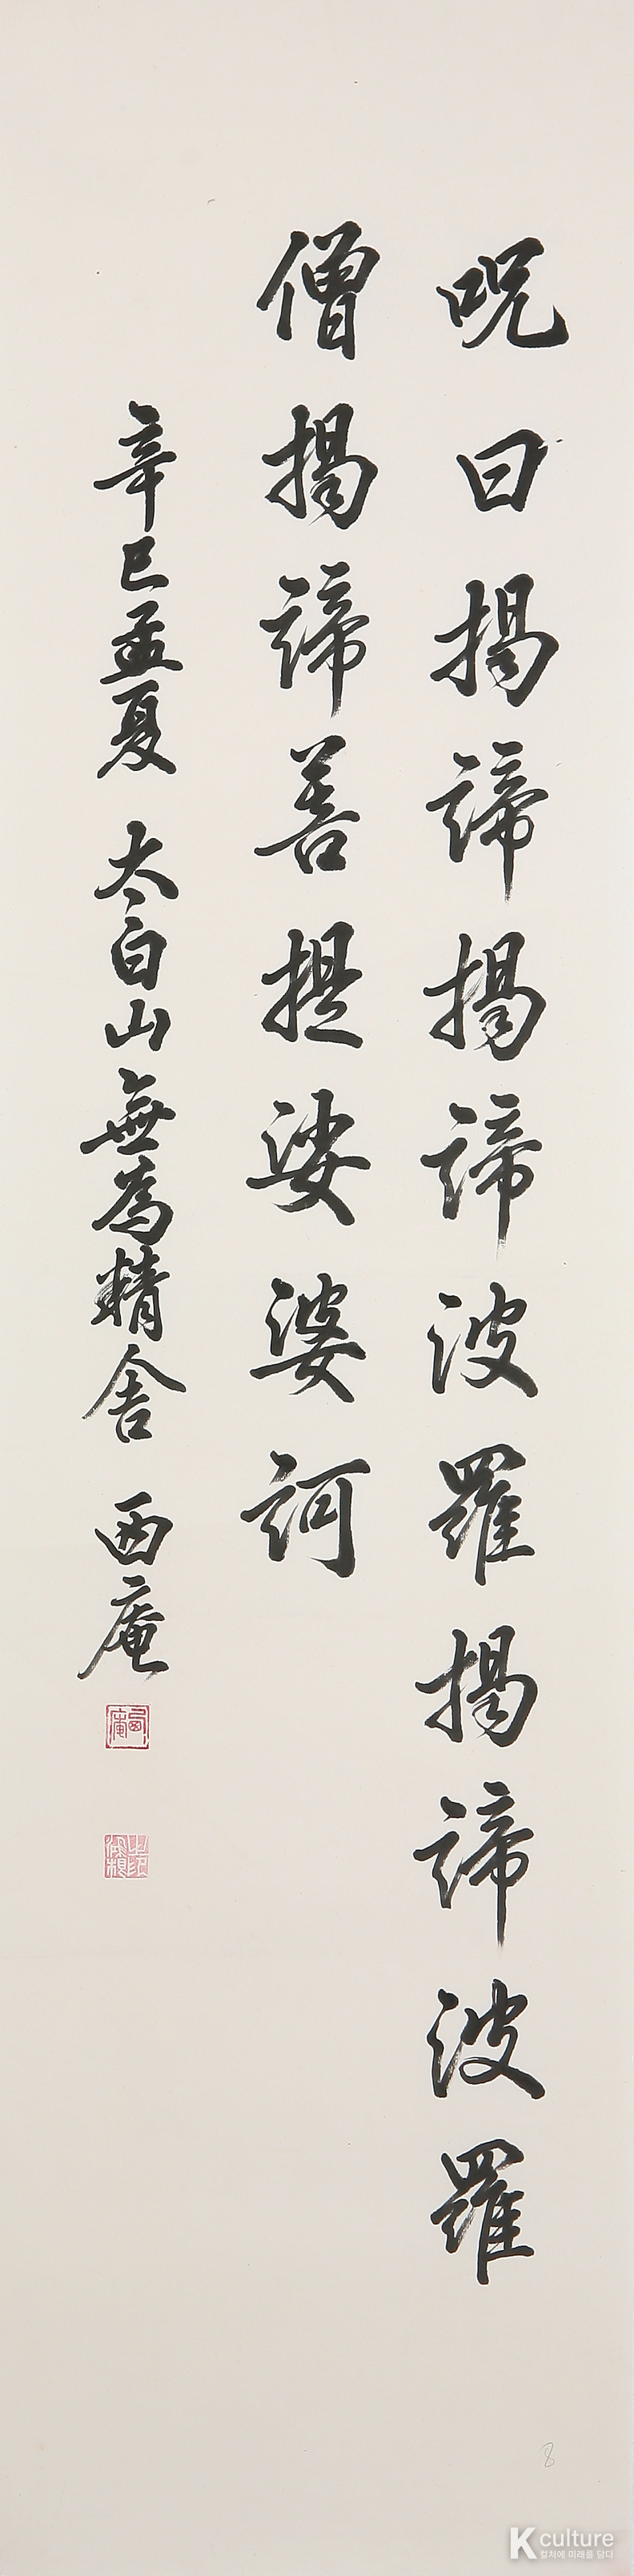 呪曰揭諦揭諦波羅揭諦波羅
僧揭諦菩提娑婆訶
辛巳孟夏 太白山無為精舍 西庵
西庵
8
K culture
컬처에 미래를 담다